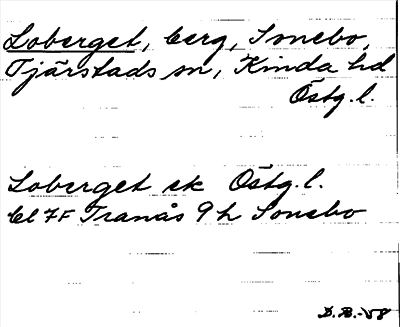 Loberget, berg, Sonebo,
Tjärstads sn, Kinda hd
Östg. l.
Loberget ek Östg. l.
bl 7F Tranås 9 h Sonebo
D.B.-58